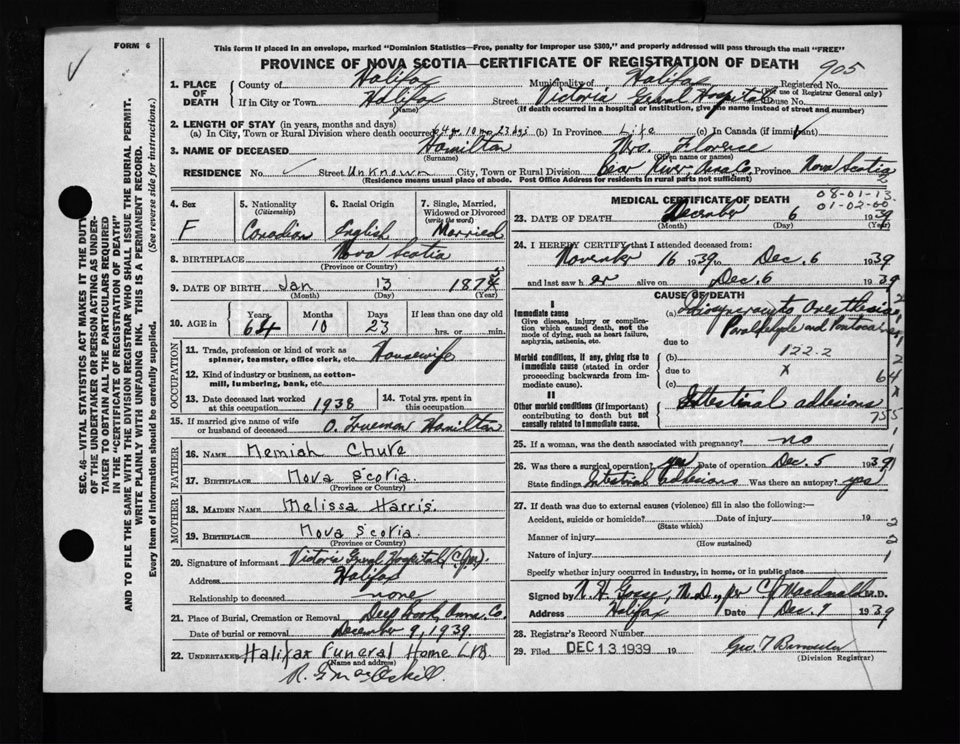 FORM 6
This form if placed in an envelope, marked "Dominion Statistics—Free, penalty for improper use $300," and properly addressed will pass through the mail "FREE"
PROVINCE OF NOVA SCOTIA—CERTIFICATE OF REGISTRATION OF DEATH
905
SEC. 46—VITAL STATISTICS ACT MAKES IT THE DUTY
OF THE UNDERTAKER OR PERSON ACTING AS UNDER-
TAKER TO OBTAIN ALL THE PARTICULARS REQUIRED
IN THE "CERTIFICATE OF REGISTRATION OF DEATH"
AND TO FILE THE SAME WITH THE DIVISION REGISTRAR WHO SHALL ISSUE THE BURIAL PERMIT.
WRITE PLAINLY WITH UNFADING INK. THIS IS A PERMANENT RECORD.
Every item of Information should be carefully supplied. (See reverse side for instructions.)
1. PLACE OF DEATH
County of Halifax Municipality of Halifax Registered No.
(For use of Registrar General only)
If in City or Town Halifax Street Victoria General Hospital House No.
(Name) (If death occurred in a hospital or institution, give the name instead of street and number)
2. LENGTH OF STAY (in years, months and days)
(a) In City, Town or Rural Division where death occurred 64 yr. 10 mo. 23 dys (b) In Province Life (c) In Canada (if immigrant)
3. NAME OF DECEASED Hamilton Mrs. Florence
(Surname) (Given name or names)
RESIDENCE No. Street Unknown City, Town or Rural Division Bear River, Anna Co. Province Nova Scotia
(Residence means usual place of abode. Post Office Address for residents in rural parts not sufficient)
4. Sex
F
5. Nationality
(Citizenship)
Canadian
6. Racial Origin
English
7. Single, Married, Widowed or Divorced
(write the word)
Married
8. BIRTHPLACE Nova Scotia
(Province or Country)
9. DATE OF BIRTH Jan 13 1875
(Month) (Day) (Year)
10. AGE in
Years Months Days If less than one day old
64 10 23 hrs. or min.
OCCUPATION
11. Trade, profession or kind of work as
spinner, teamster, office clerk, etc. Housewife
12. Kind of industry or business, as cotton-
mill, lumbering, bank, etc.
13. Date deceased last worked
at this occupation 1938
14. Total yrs. spent in
this occupation
15. If married give name of wife
or husband of deceased O. Trueman Hamilton
FATHER
16. Name Nemiah Chute
17. Birthplace Nova Scotia.
(Province or Country)
MOTHER
18. Maiden Name Melissa Harris.
19. Birthplace Nova Scotia
(Province or Country)
20. Signature of informant Victoria Genral Hospital (C.J.M.)
Address Halifax
Relationship to deceased none
21. Place of Burial, Cremation or Removal Deep Brook, Anna. Co.
Date of burial or removal December 9, 1939.
22. UNDERTAKER Halifax Funeral Home LTD
(Name and address)
MEDICAL CERTIFICATE OF DEATH
08-01-13
01-02-00
23. DATE OF DEATH December 6 1939
(Month) (Day) (Year)
24. I HEREBY CERTIFY that I attended deceased from:
November 16 1939 to Dec. 6 1939
and last saw her alive on Dec. 6 1939
CAUSE OF DEATH
I
Immediate cause
Give disease, injury or complication which caused death, not the mode of dying, such as heart failure, asphyxia, asthenia, etc.
(a) Idiosyncrasy to Anesthesia,
Paraldehyde and Pontocaine
due to
Morbid conditions, if any, giving rise to immediate cause (stated in order proceeding backwards from immediate cause).
(b) 122.2
due to x
(c)
64
II
Other morbid conditions (if important) contributing to death but not causally related to immediate cause.
Intestinal adhesions
755
25. If a woman, was the death associated with pregnancy? no
26. Was there a surgical operation? yes Date of operation Dec. 5 1939
State findings Intestinal adhesions Was there an autopsy? yes
27. If death was due to external causes (violence) fill in also the following:—
Accident, suicide or homicide? Date of injury 19
(State which)
Manner of injury
(How sustained)
Nature of injury
Specify whether injury occurred in Industry, in home, or in public place
Signed by N. H. Gosse, M.D., per C J Macdonald M.D.
Address Halifax Date Dec. 9 1939
28. Registrar's Record Number
29. Filed DEC 13 1939 19
(Division Registrar)